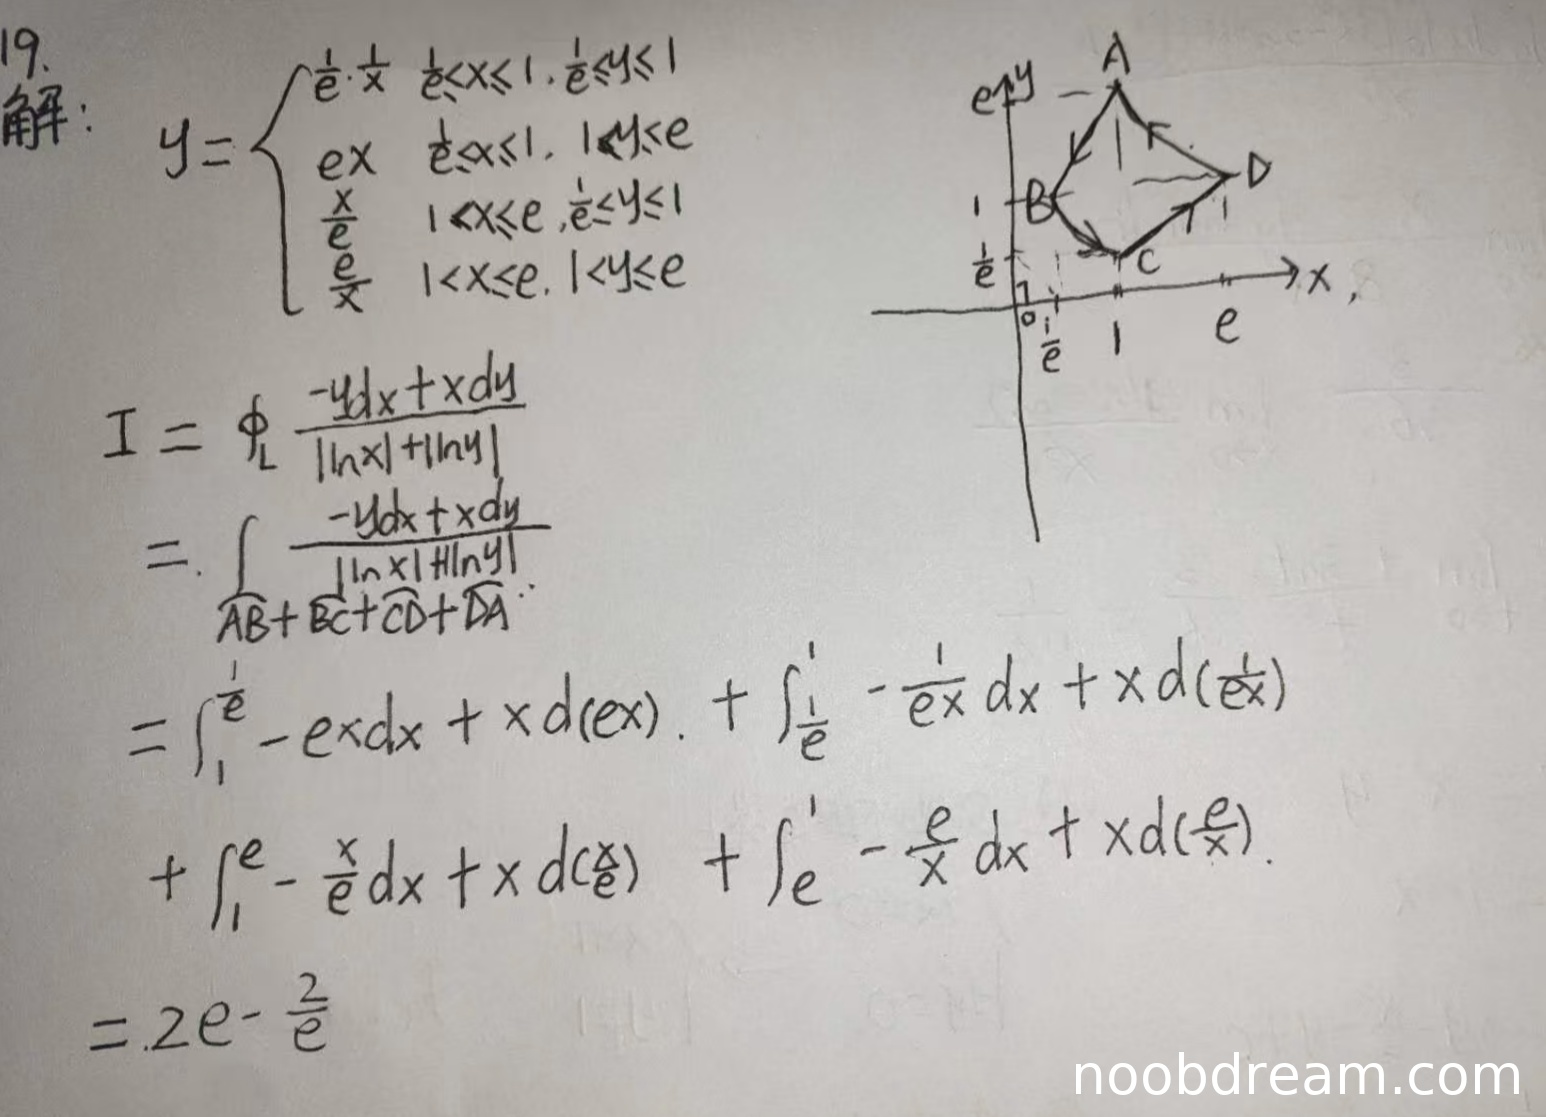 19.
解:
y = { 1/e · 1/x  1/e ≤ x ≤ 1 . 1/e ≤ y ≤ 1
ex  1/e ≤ x ≤ 1 . 1 < y ≤ e
x/e  1 < x ≤ e , 1/e ≤ y ≤ 1
e/x  1 < x ≤ e . 1 < y ≤ e
A
e y
D
1 B
1/e C
0 1/e 1 e x ,
I = ∮_L (-ydx + xdy) / (|lnx| + |lny|)
= . ∫_{AB + BC + CD + DA} (-ydx + xdy) / (|lnx| + |lny|)
= ∫_1^{1/e} -exdx + xd(ex) . + ∫_{1/e}^1 - 1/ex dx + xd(1/ex)
+ ∫_1^e - x/e dx + xd(x/e) + ∫_e^1 - e/x dx + xd(e/x) .
= . 2e - 2/e
noobdream.com